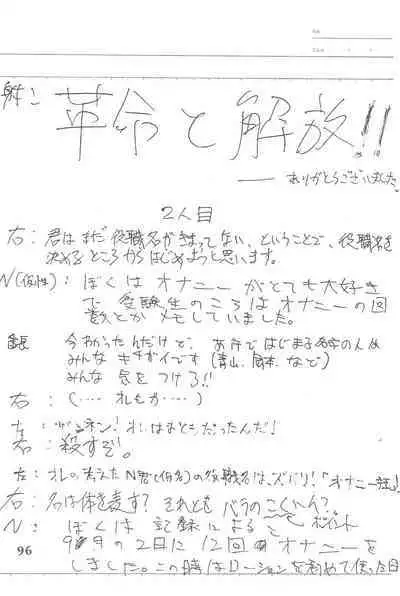 革命と解放!!
ありがとうございました。
2人目
右:君はまだ役職名がきまってない、ということで、役職名を
決めるところからはじめようと思います。
N(仮性):ぼくはオナニーがとても大好き
で受験生のころはオナニーの回
数とかメモしていました。
今わかったんだけど、あ行ではじまる名字の人は
みんなキチガイです(青山、など)
みんな気をつけろ!!
右:(‥‥オレもか‥‥)
左:ザンネン!オレはまともだったんだ!
右:殺すぞ。
左:オレの考えたN君(仮名)の役職名は、ズバリ!「オナニー
右:名は体を表す?それともバラのこくいん?
N:ぼくは記録によると
9月の2日に12回オナニーを
しました。この時はローションを初めて使った日
96